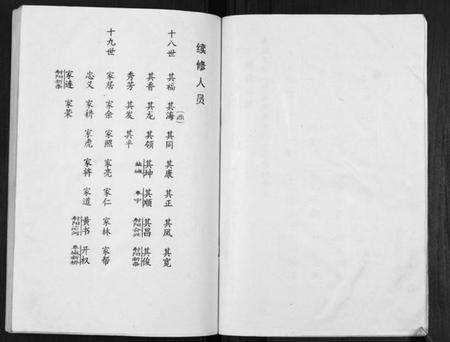 续修人员
十八世
其福 其海 其同 其康 其正 其凤 其宽
其香 其龙 其领 其坤 其顺 其昌 其俊
秀芳 其发 其平
十九世
家居 家余 家照 家亮 家仁 家林 家帮
忠义 家耕 家虎 家锌 家道 黄书 开权
家连 家荣